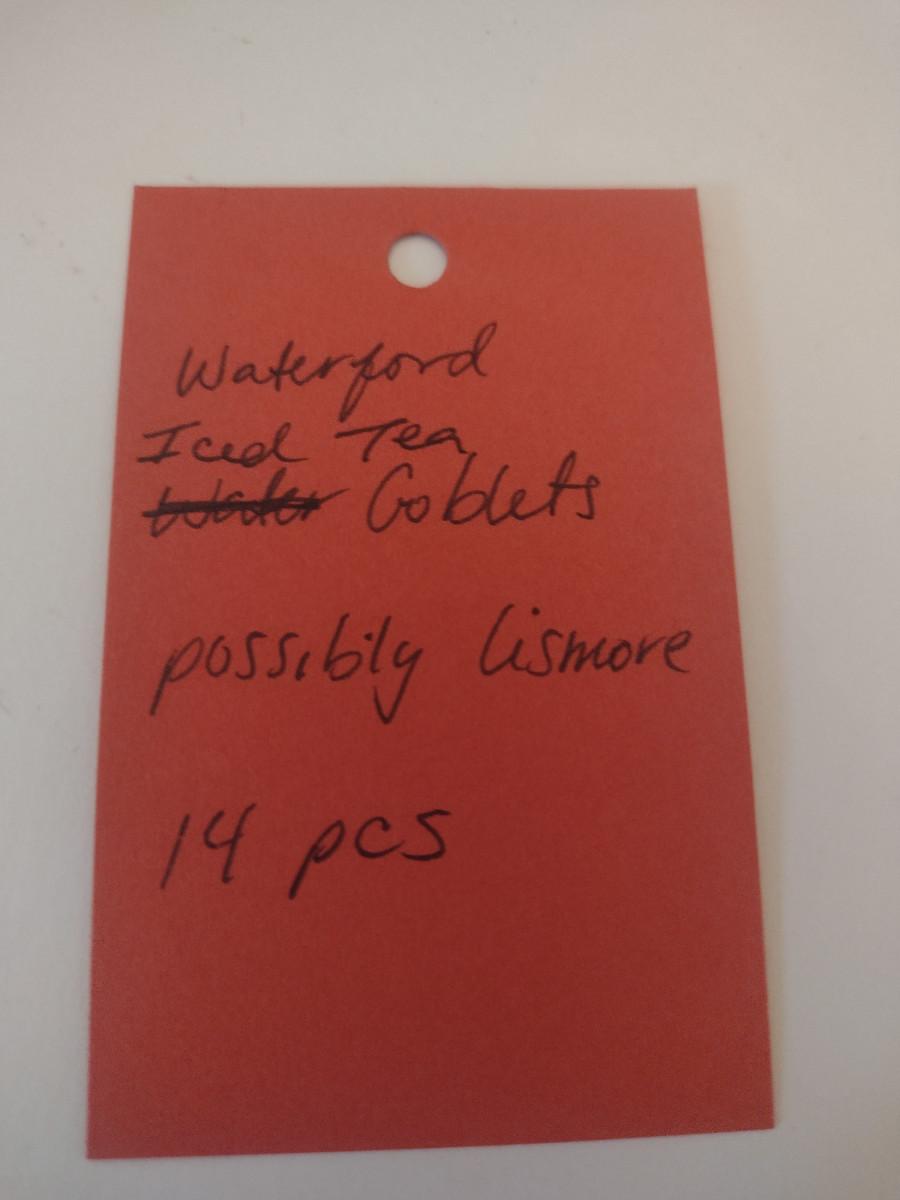 Waterford
Iced Tea
Water Goblets
possibily lismore
14 pcs